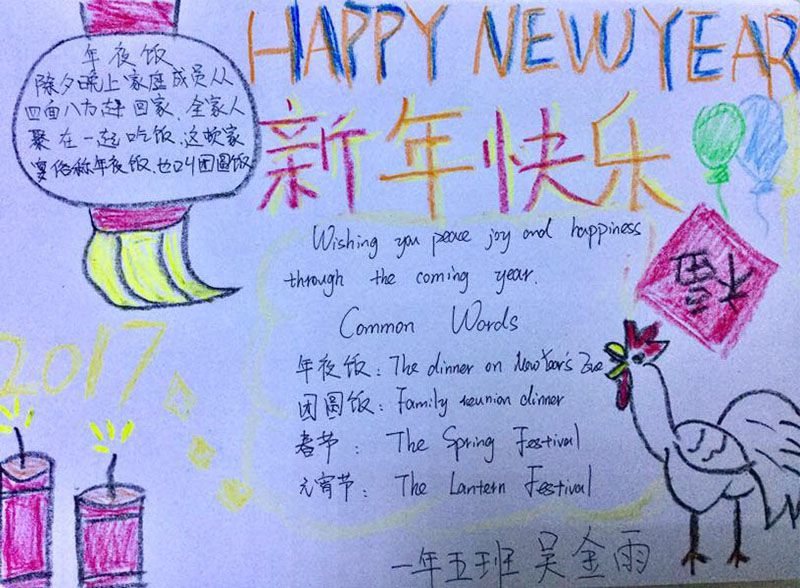 HAPPY NEW YEAR
新年快乐
年夜饭
除夕晚上家庭成员从
四面八方赶回家、全家人
聚在一起吃饭、这顿家
宴俗称年夜饭、也叫团圆饭
福
Wishing you peace joy and happiness
through the coming year.
Common Words
年夜饭: The dinner on New Year's Eve
团圆饭: Family reunion dinner
春节: The Spring Festival
元宵节: The Lantern Festival
2017
一年五班 吴金雨